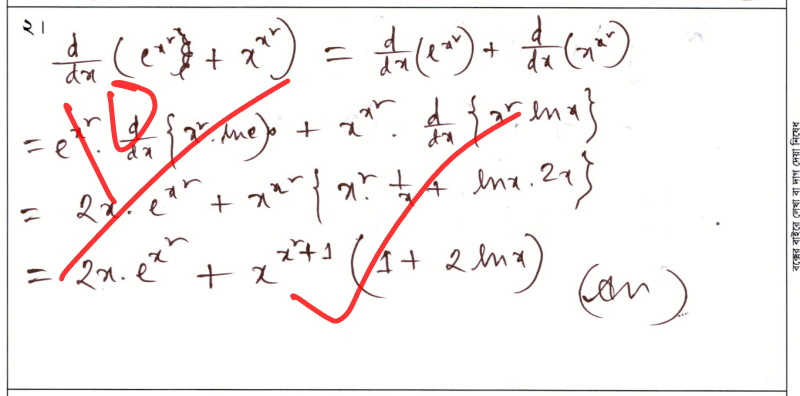 ২১
d/dx (e^x² + x^x²) = d/dx (e^x²) + d/dx (x^x²)
= e^x² · d/dx {x² · ln e} + x^x² · d/dx {x² ln x}
= 2x · e^x² + x^x² {x² · 1/x + ln x · 2x}
= 2x · e^x² + x^x²+1 (1 + 2 ln x) (Ans)
বক্সের বাইরে লেখা বা দাগ দেয়া নিষেধ